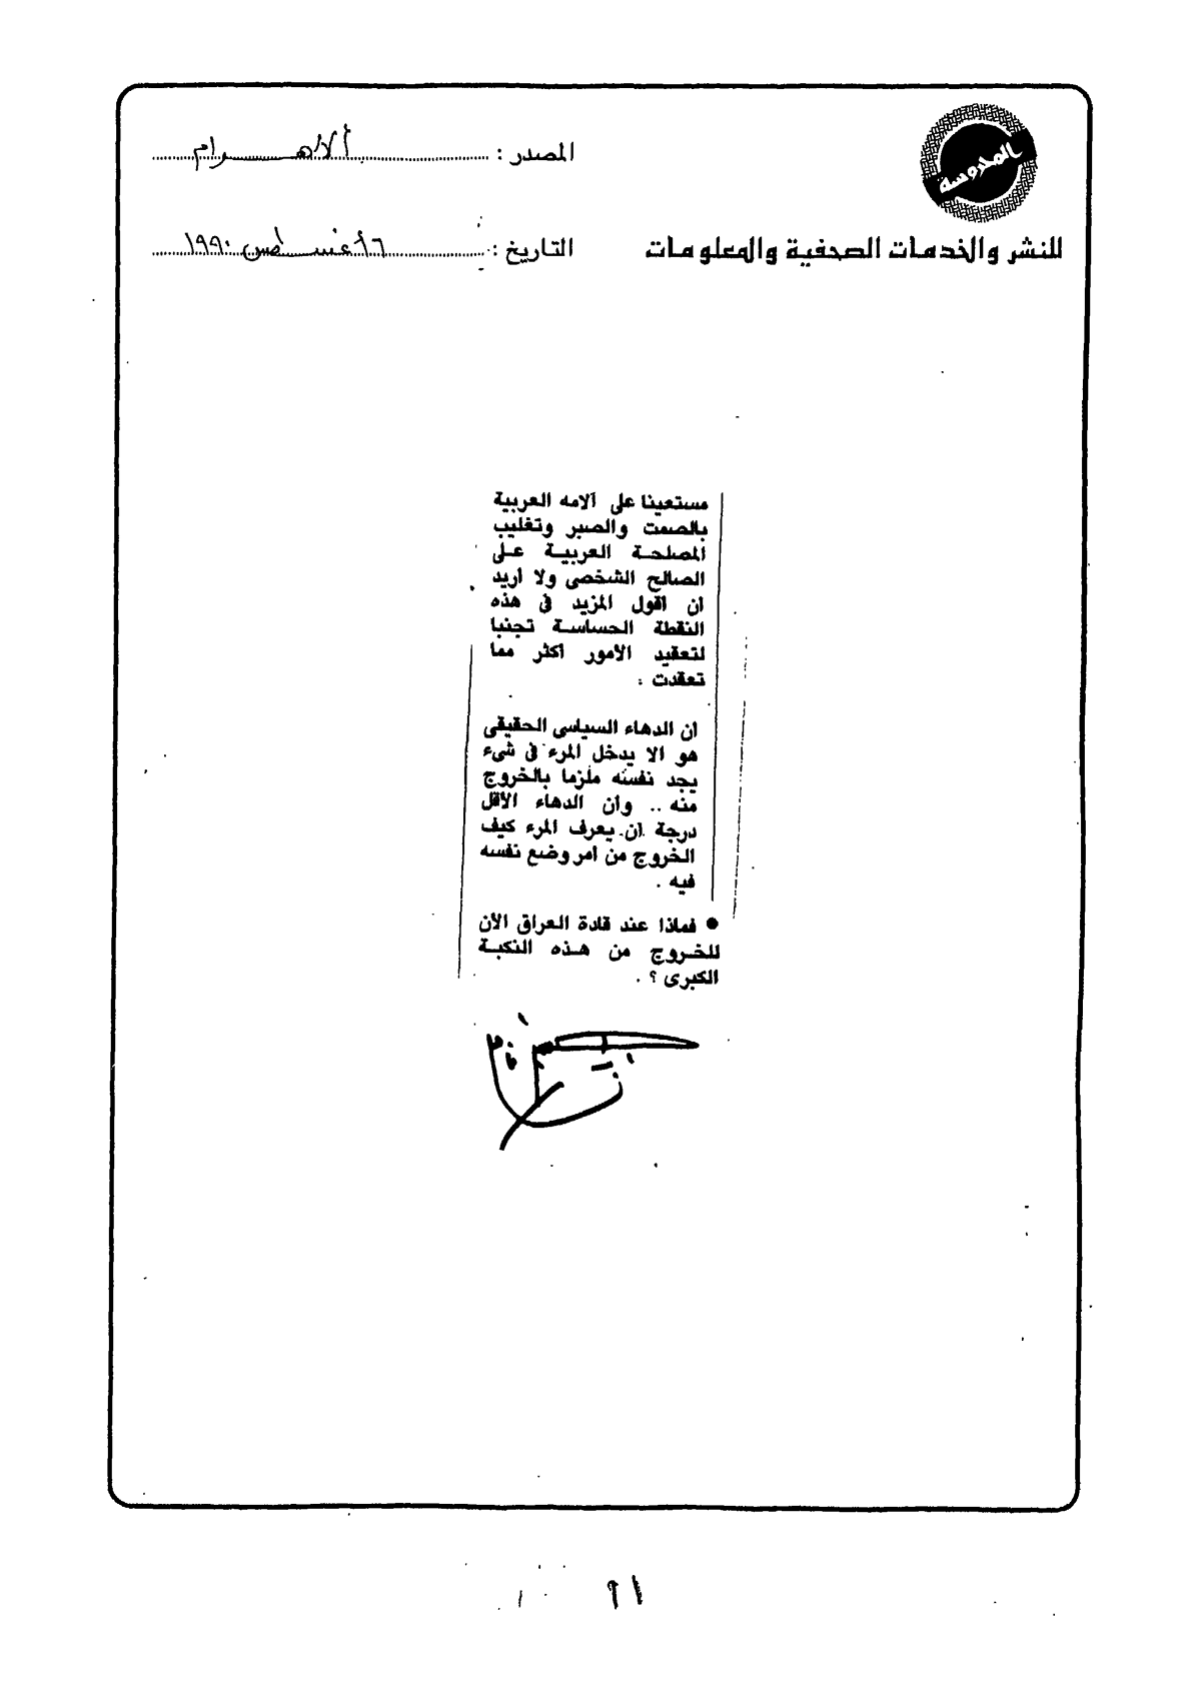 المحروسة
المصدر : الأهرام
للنشر والخدمات الصحفية والمعلومات
التاريخ : ١٦ أغسطس ١٩٩٠
مستعينا على آلامه العربية
بالصمت والصبر وتغليب
المصلحة العربية على
الصالح الشخصى ولا اريد
ان اقول المزيد فى هذه
النقطة الحساسة تجنبا
لتعقيد الأمور أكثر مما
تعقدت .
ان الدهاء السياسى الحقيقى
هو الا يدخل المرء فى شىء
يجد نفسه ملزما بالخروج
منه .. وان الدهاء الأقل
درجة ان يعرف المرء كيف
الخروج من امر وضع نفسه
فيه .
● فماذا عند قادة العراق الآن
للخروج من هذه النكبة
الكبرى ؟ .